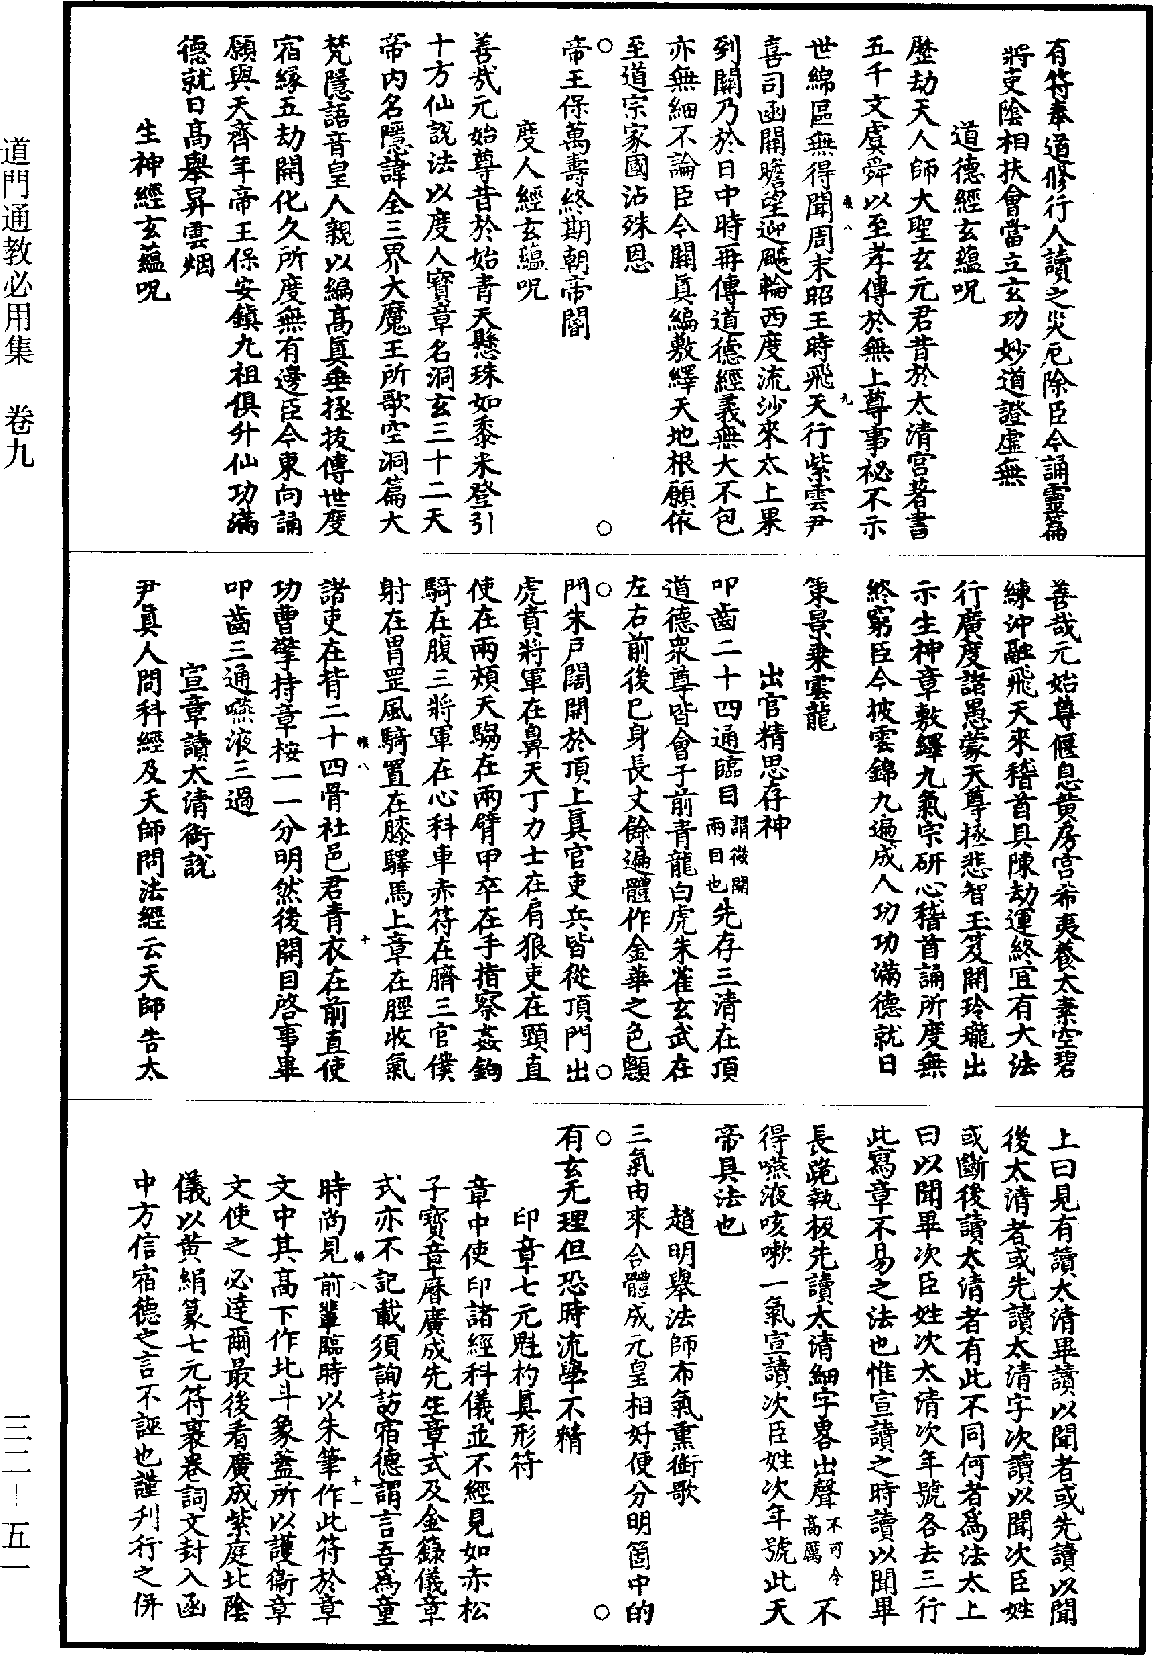 有符奉道修行人讀之災厄除臣今誦靈篇
將吏陰相扶會當立玄功妙道證虛無
道德經玄蘊呪
歷劫天人師大聖玄元君昔於太清宮著書
五千文虞舜以至孝傳於無上尊事祕不示
世綿區無得聞周末昭王時飛天行紫雲尹
喜司函關瞻望迎飈輪西度流沙來太上果
到關乃於日中時再傳道德經義無大不包
亦無細不論臣今開真編敷繹天地根願依
至道宗家國沾殊恩
帝王保萬壽終期朝帝閽
度人經玄蘊呪
善哉元始尊昔於始青天懸珠如黍米登引
十方仙說法以度人寶章名洞玄三十二天
帝內名隱諱全三界大魔王所歌空洞篇大
梵隱語音皇人親以編高真垂拯拔傳世度
宿緣五劫開化久所度無有邊臣今東向誦
願與天齊年帝王保安鎮九祖俱升仙功滿
德就日高舉昇雲烟
生神經玄蘊呪
善哉元始尊偃息黃房宮希夷養太素空碧
練沖融飛天來稽首具陳劫運終宜有大法
行廣度諸愚蒙天尊拯悲智玉笈開玲瓏出
示生神章敷繹九氣宗研心稽首誦所度無
終窮臣今披雲錦九遍成人功功滿德就日
策景乘雲龍
出官精思存神
叩齒二十四通臨目謂微開兩目也先存三清在頂
道德眾尊皆會于前青龍白虎朱雀玄武在
左右前後已身長丈餘遍體作金華之色顖
門朱戶闊開於頂上真官吏兵皆從頂門出
虎賁將軍在鼻天丁力士在肩狼吏在頸直
使在兩頰天騶在兩臂甲卒在手指察姦鉤
騎在腹三將軍在心科車赤符在臍三官僕
射在胃罡風騎置在膝驛馬上章在脛收氣
諸吏在背二十四骨社邑君青衣在前直使
功曹擎持章桉一一分明然後開目啓事畢
叩齒三通嚥液三過
宣章讀太清銜說
尹真人問科經及天師問法經云天師告太
上曰見有讀太清畢讀以聞者或先讀以聞
後太清者或先讀太清字次讀以聞次臣姓
或斷後讀太清者有此不同何者為法太上
曰以聞畢次臣姓次太清次年號各去三行
此寫章不易之法也惟宣讀之時讀以聞畢
長跪執板先讀太清細字畧出聲不可令高厲不
得嚥液咳嗽一氣宣讀次臣姓次年號此天
帝具法也
趙明舉法師布氣熏銜歌
三氣由來合體成元皇相好便分明箇中的
有玄元理但恐時流學不精
印章七元魁杓真形符
章中使印諸經科儀並不經見如赤松
子寶章曆廣成先生章式及金籙儀章
式亦不記載須詢訪宿德謂言吾為童
時尚見前輩臨時以朱筆作此符於章
文中其高下作北斗象蓋所以護衞章
文使之必達爾最後看廣成紫庭北陰
儀以黃絹篆七元符裹卷詞文封入函
中方信宿德之言不誣也謹刋行之併
道門通教必用集　卷九
三二—五一